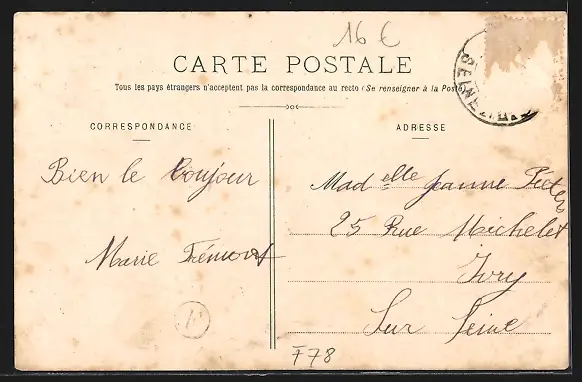 16 €
CARTE POSTALE
Tous les pays étrangers n'acceptent pas la correspondance au recto (Se renseigner à la Poste)
CORRESPONDANCE
ADRESSE
Bien le bonjour
Marie Frémont
Madelle Jeanne
25 Rue Michelet
Ivry
Sur Seine
F78